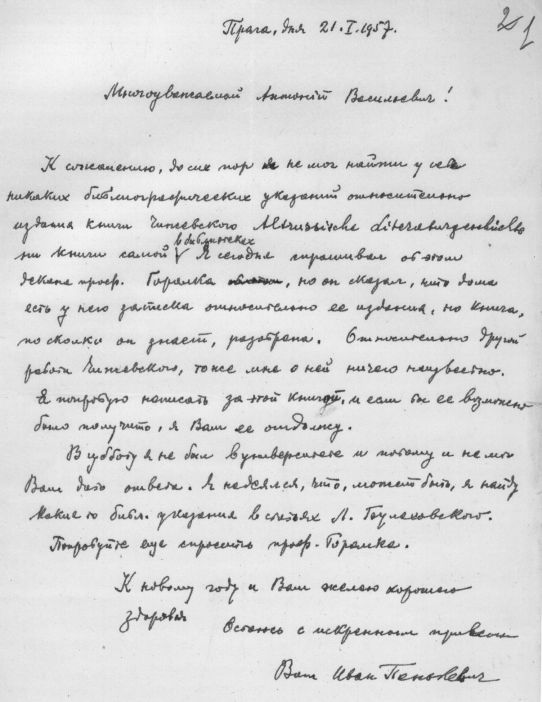 Прага, дня 21.I.1957.
Многоуважаемой Антоній Васильевич!
К сожалению, до сих пор я не мог найти у себя
никаких библиографических указаний относительно
издания книги Чижевского Altrussische Literaturgeschichte
ни книги самой в библиотеках Я сегодня спрашивал об этом
декана проф. Горалка, но он сказал, что дома
есть у него записка относительно ее издания, но книга,
по сколки он знает, разобрана. Относительно другой
работи Чижевского, тоже мне о ней ничего неизвестно.
Я попробую написать за этой книгой, и если бы ее возможно
было получить, я Вам ее одолжу.
В субботу я не был в университете и потому и не мог
Вам дать ответа. Я надеялся, что, может быть, я найду
какие то библ. указания в статьях Л. Булаховского.
Попробуйте еще спросить проф. Горалка.
К новому году и Вам желаю хорошего
здоровья
Остаюсь с искренным приветом
Ваш Иван Панькевич